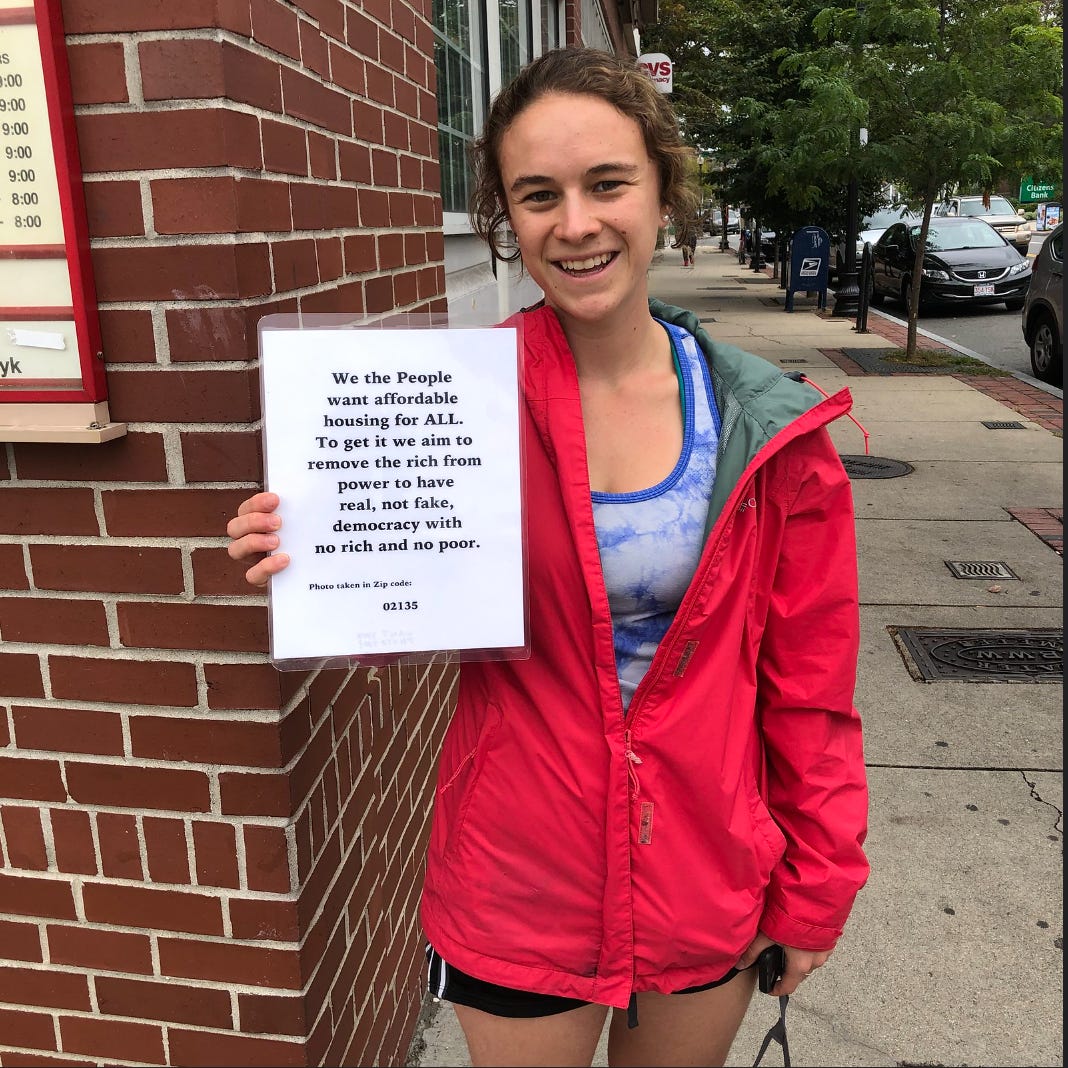 9:00
9:00
9:00
9:00
9:00
8:00
- 8:00
yk
CVS
We the People
want affordable
housing for ALL.
To get it we aim to
remove the rich from
power to have
real, not fake,
democracy with
no rich and no poor.
Photo taken in Zip code:
02135
Citizens
Bank
WATER